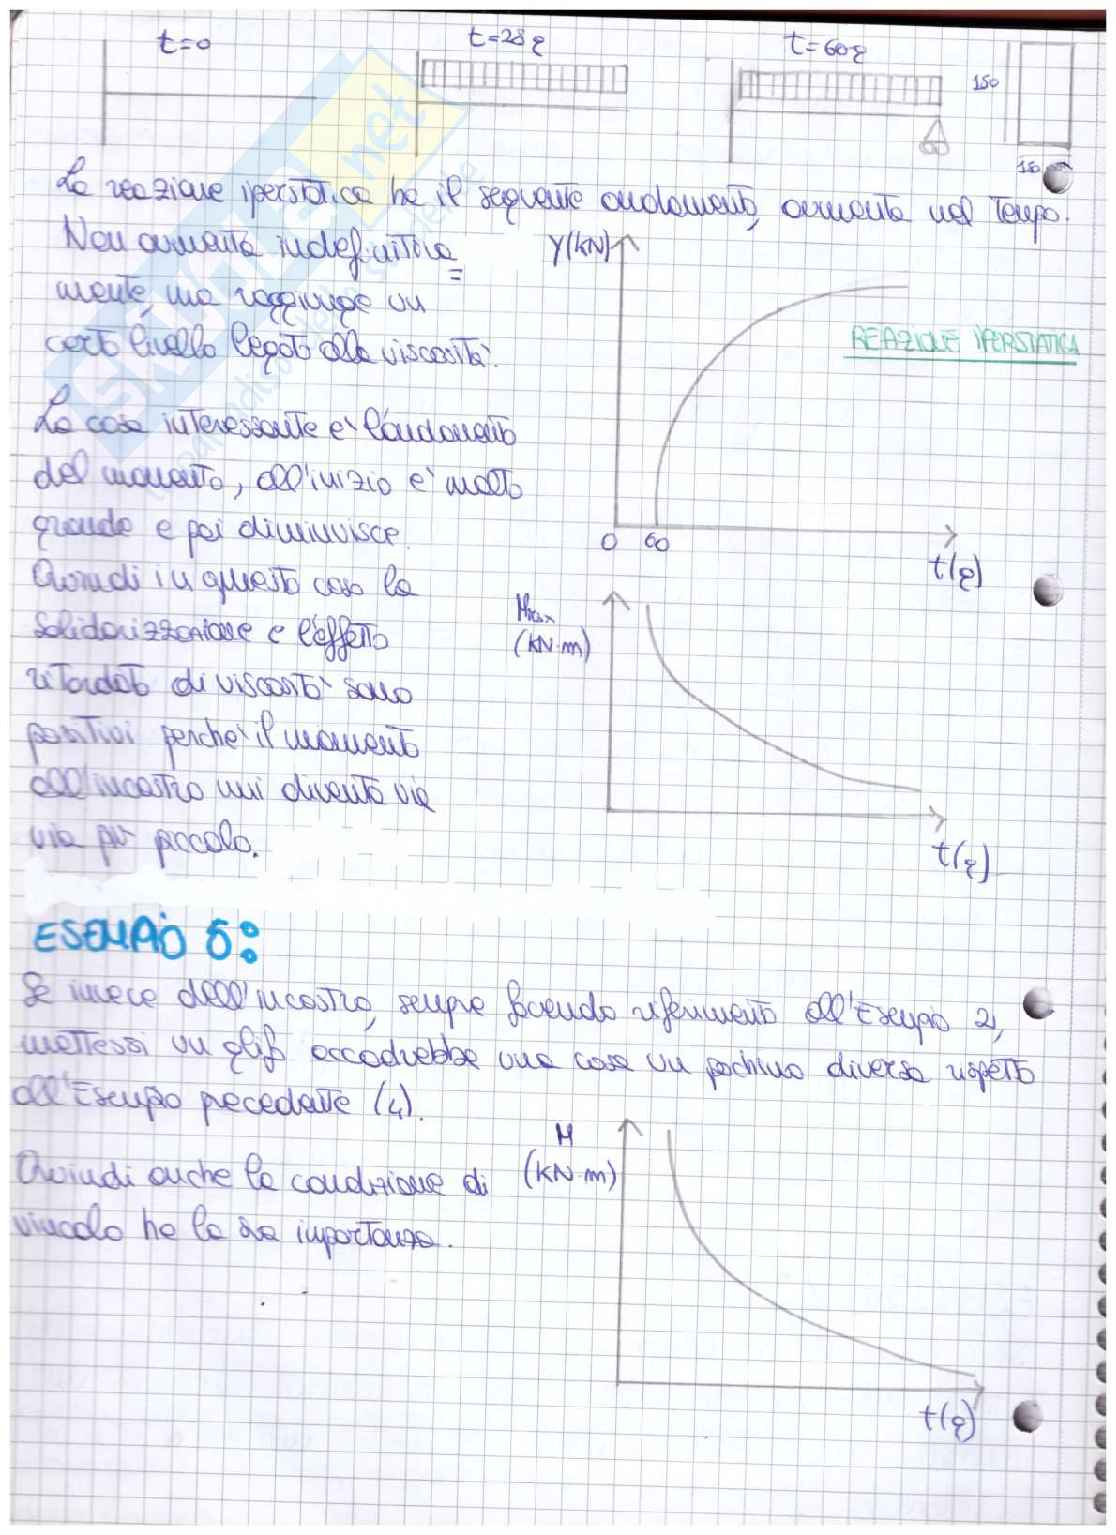 t=0
t=28g
t=60g
150
La reazione iperstatica ha il seguente andamento, aumenta nel tempo.
Non aumenta indefinitiva=
mente, ma raggiunge un
certo livello legato alla viscosità.
Y(kN)
REAZIONE IPERSTATICA
0 60
t(g)
La cosa interessante e' l'andamento
del momento, all'inizio e' molto
grande e poi diminuisce.
Quindi in questo caso la
solidarizzazione e l'effetto
ritardato di viscosità sono
positivi perche' il momento
all'incastro mi diventa via
via più piccolo.
Mmax
(kN·m)
t(g)
ESEMPIO 5:
Se invece dell'incastro, sempre facendo riferimento all'Esempio 2,
mettessi un glifo accadrebbe una cosa un pochino diversa rispetto
all'Esempio precedente (4).
Quindi anche la condizione di
vincolo ha la sua importanza.
M
(kN·m)
t(g)